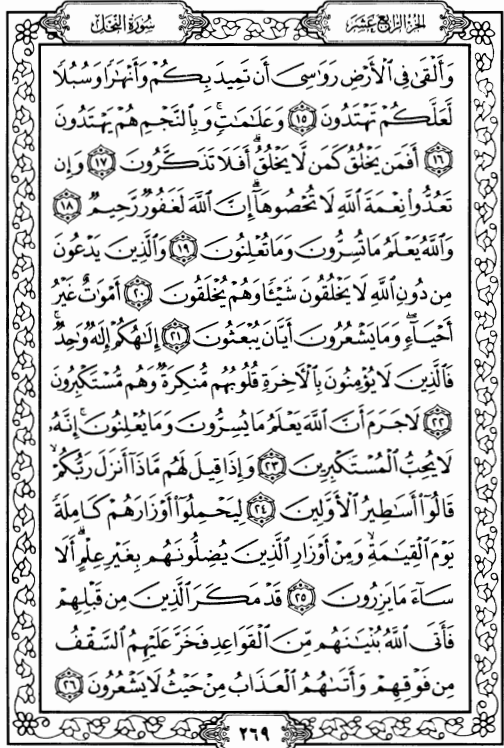 سورة النحل
الجزء الرابع عشر
وَأَلْقَىٰ فِي الْأَرْضِ رَوَاسِيَ أَن تَمِيدَ بِكُمْ وَأَنْهَٰرًا وَسُبُلًا
لَّعَلَّكُمْ تَهْتَدُونَ ١٥ وَعَلَٰمَٰتٍ ۚ وَبِالنَّجْمِ هُمْ يَهْتَدُونَ
١٦ أَفَمَن يَخْلُقُ كَمَن لَّا يَخْلُقُ ۗ أَفَلَا تَذَكَّرُونَ ١٧ وَإِن
تَعُدُّوا۟ نِعْمَةَ اللَّهِ لَا تُحْصُوهَآ ۗ إِنَّ اللَّهَ لَغَفُورٌ رَّحِيمٌ ١٨
وَاللَّهُ يَعْلَمُ مَا تُسِرُّونَ وَمَا تُعْلِنُونَ ١٩ وَالَّذِينَ يَدْعُونَ
مِن دُونِ اللَّهِ لَا يَخْلُقُونَ شَيْـًٔا وَهُمْ يُخْلَقُونَ ٢٠ أَمْوَٰتٌ غَيْرُ
أَحْيَآءٍ ۖ وَمَا يَشْعُرُونَ أَيَّانَ يُبْعَثُونَ ٢١ إِلَٰهُكُمْ إِلَٰهٌ وَٰحِدٌ ۚ
فَالَّذِينَ لَا يُؤْمِنُونَ بِالْءَاخِرَةِ قُلُوبُهُم مُّنكِرَةٌ وَهُم مُّسْتَكْبِرُونَ
٢٢ لَا جَرَمَ أَنَّ اللَّهَ يَعْلَمُ مَا يُسِرُّونَ وَمَا يُعْلِنُونَ ۚ إِنَّهُۥ
لَا يُحِبُّ الْمُسْتَكْبِرِينَ ٢٣ وَإِذَا قِيلَ لَهُم مَّاذَآ أَنزَلَ رَبُّكُمْ ۙ
قَالُوٓا۟ أَسَٰطِيرُ الْأَوَّلِينَ ٢٤ لِيَحْمِلُوٓا۟ أَوْزَارَهُمْ كَامِلَةً
يَوْمَ الْقِيَٰمَةِ ۙ وَمِنْ أَوْزَارِ الَّذِينَ يُضِلُّونَهُم بِغَيْرِ عِلْمٍ ۗ أَلَا
سَآءَ مَا يَزِرُونَ ٢٥ قَدْ مَكَرَ الَّذِينَ مِن قَبْلِهِمْ
فَأَتَى اللَّهُ بُنْيَٰنَهُم مِّنَ الْقَوَاعِدِ فَخَرَّ عَلَيْهِمُ السَّقْفُ
مِن فَوْقِهِمْ وَأَتَىٰهُمُ الْعَذَابُ مِنْ حَيْثُ لَا يَشْعُرُونَ ٢٦
٢٦٩